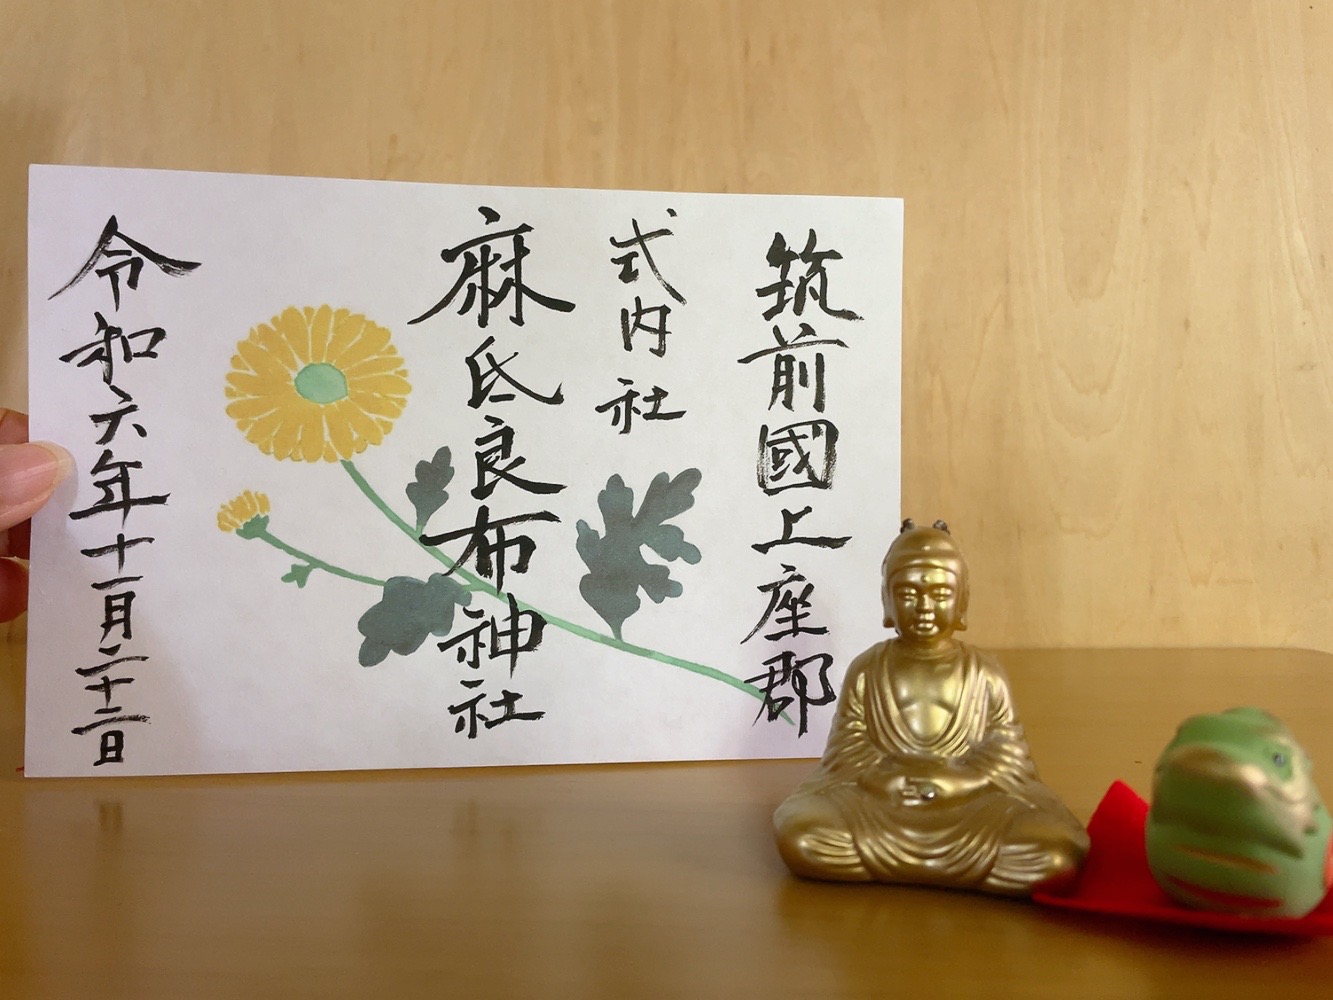 筑前國上座郡
式内社
麻氐良布神社
令和六年十一月二十二日